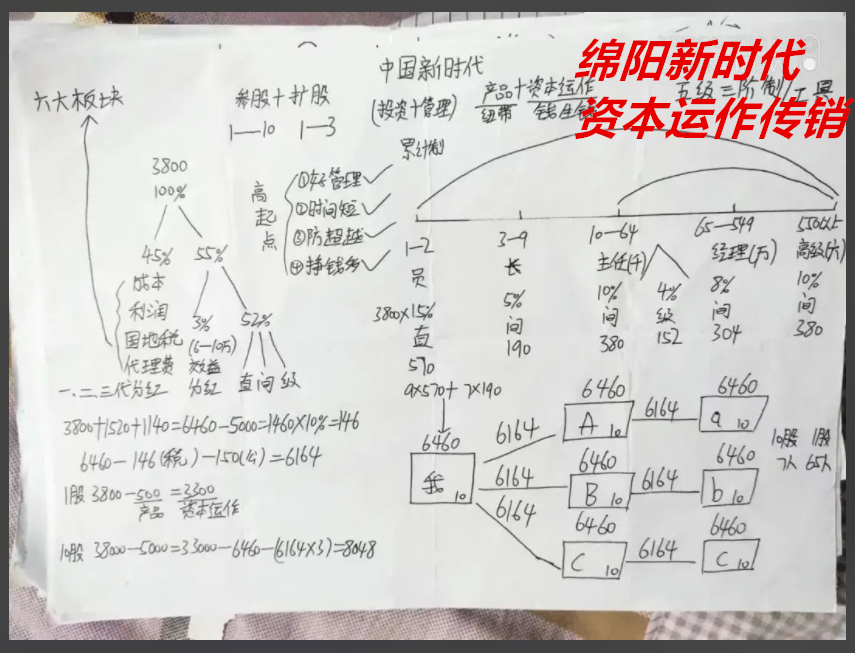 绵阳新时代
资本运作传销
中国新时代
六大板块
参股+扩股
(投资+管理)
产品+资本运作
纽带 钱生钱
五级三阶制/工具
1—10 1—3
累计制
3800
100%
高起点
①好管理✓
②时间短✓
③防超越✓
④挣钱多✓
45% 55%
成本
利润
国地税
代理费
3%
(6—10万)
效益
分红
52%
直间级
1—2 3—9 10—64 65—549 550以上
员 长 主任(千) 经理(万) 高级(六)
3800×15% 5% 10% 4% 8% 10%
直 间 间 级 间 间
570 190 380 152 304 380
一、二、三代分红
9×570+7×190
3800+1520+1140=6460-5000=1460×10%=146
6460-146(税)-150(公)=6164
1股 3800-500=3300
产品 资本运作
10股 38000-5000=33000-6460-(6164×3)=8048
6460 6460
6460 6164 A 10 6164 a 10
我 10 6460 6460
6164 B 10 6164 b 10
6164 6460 6460
C 10 6164 C 10
10股 1股
7人 65人